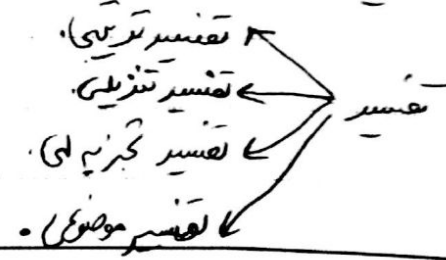 تفسیر
تفسیر ترتیبی.
تفسیر تنزیلی.
تفسیر تجزیه ای.
تفسیر موضوعی.